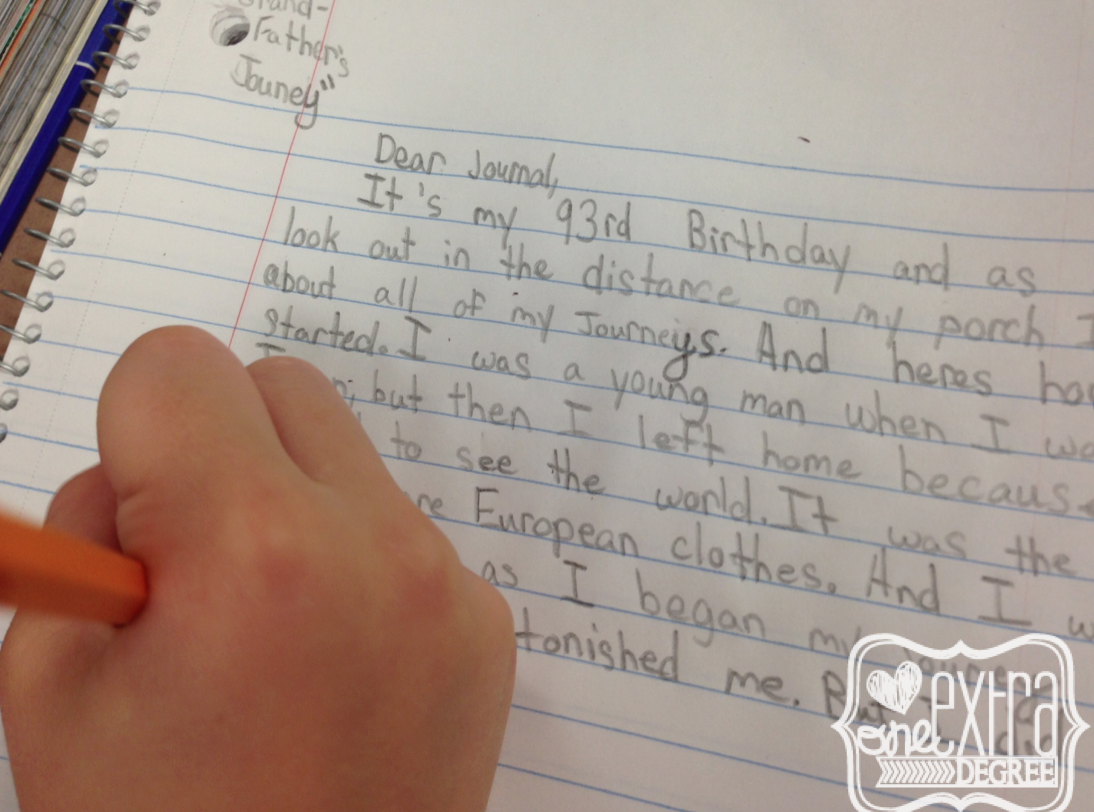 Father's
Jouney"
Dear Journal,
It's my 93rd Birthday and as
look out in the distance on my porch I
about all of my Journeys. And heres
started. I was a young man when I
but then I left home because
to see the world. It was the
European clothes. And I
as I began my
me. But
one extra
DEGREE